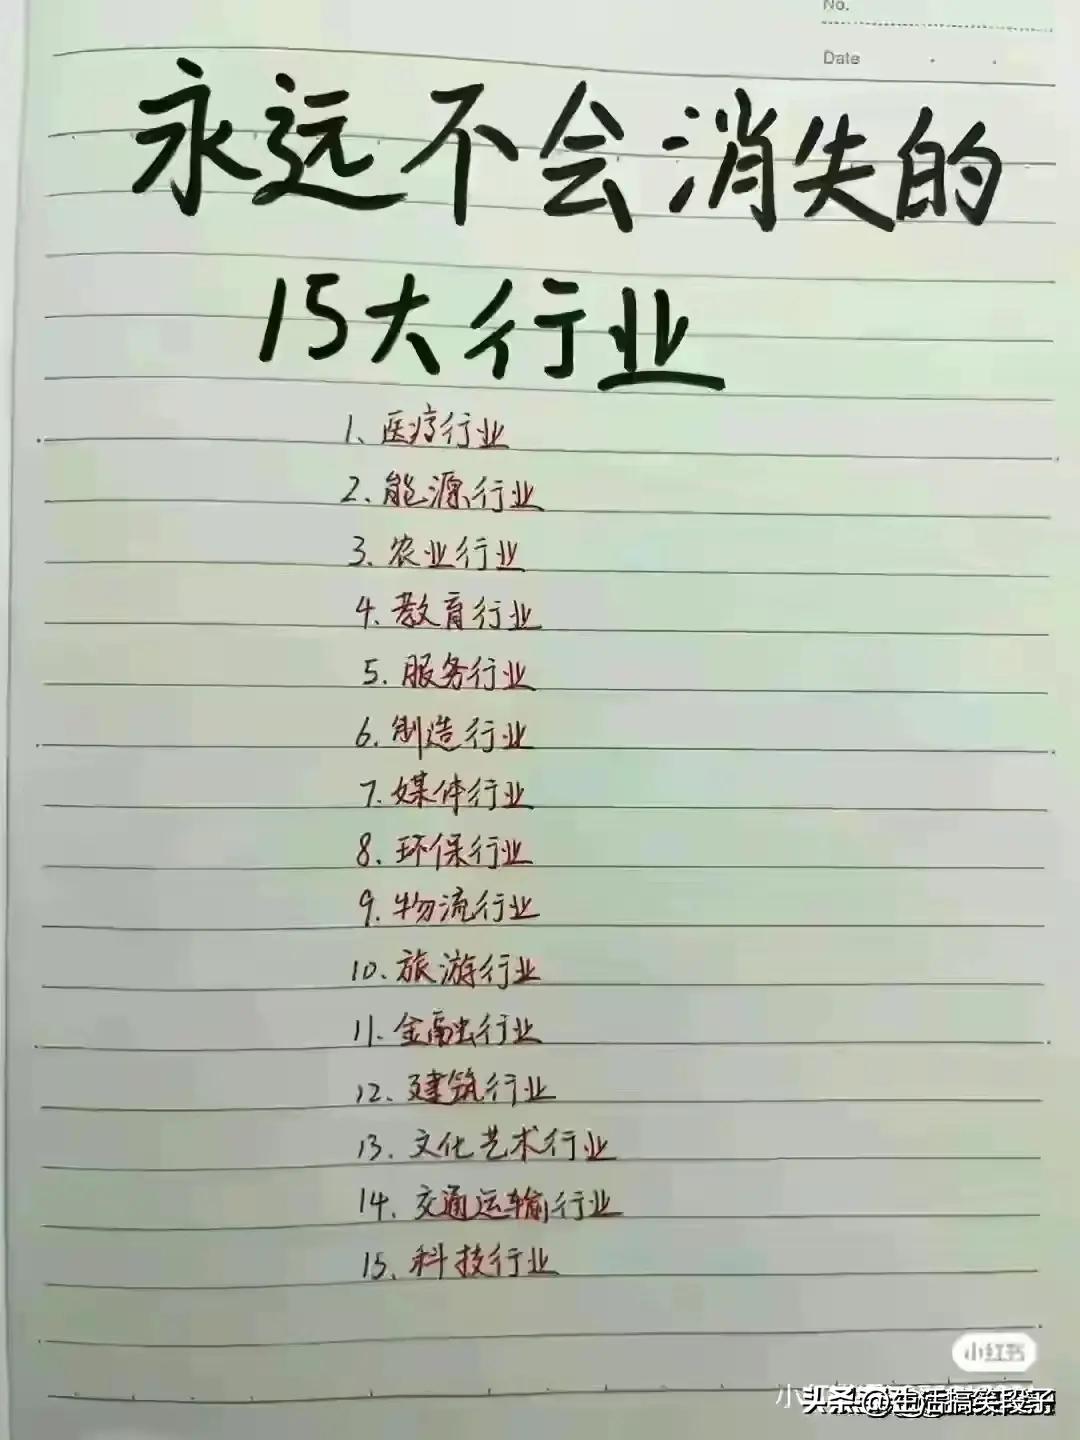 No.
Date
永远不会消失的
15大行业
1、医疗行业
2、能源行业
3、农业行业
4、教育行业
5、服务行业
6、制造行业
7、媒体行业
8、环保行业
9、物流行业
10、旅游行业
11、金融行业
12、建筑行业
13、文化艺术行业
14、交通运输行业
15、科技行业
小红书
头条@生活搞笑段子